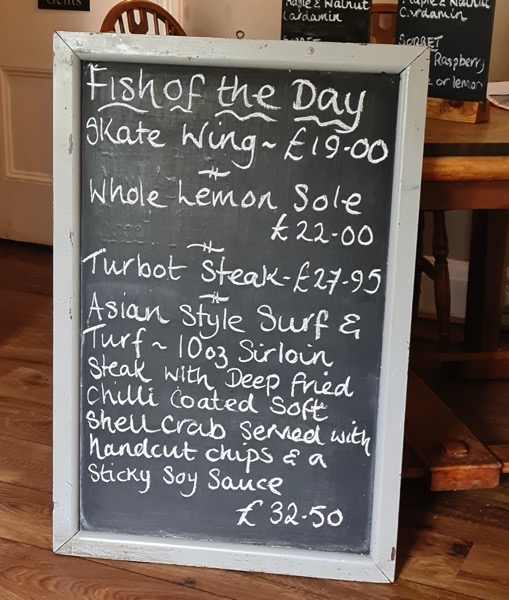 Fish of the Day
Skate Wing ~ £19.00
Whole Lemon Sole
£22.00
Turbot Steak - £27.95
Asian Style Surf &
Turf ~ 10oz Sirloin
Steak with Deep fried
Chilli Coated Soft
Shell Crab Served with
handcut chips & a
Sticky Soy Sauce
£32.50
& Walnut
Cardamin
& Walnut
Cardamin
SORBET
Raspberry
or lemon